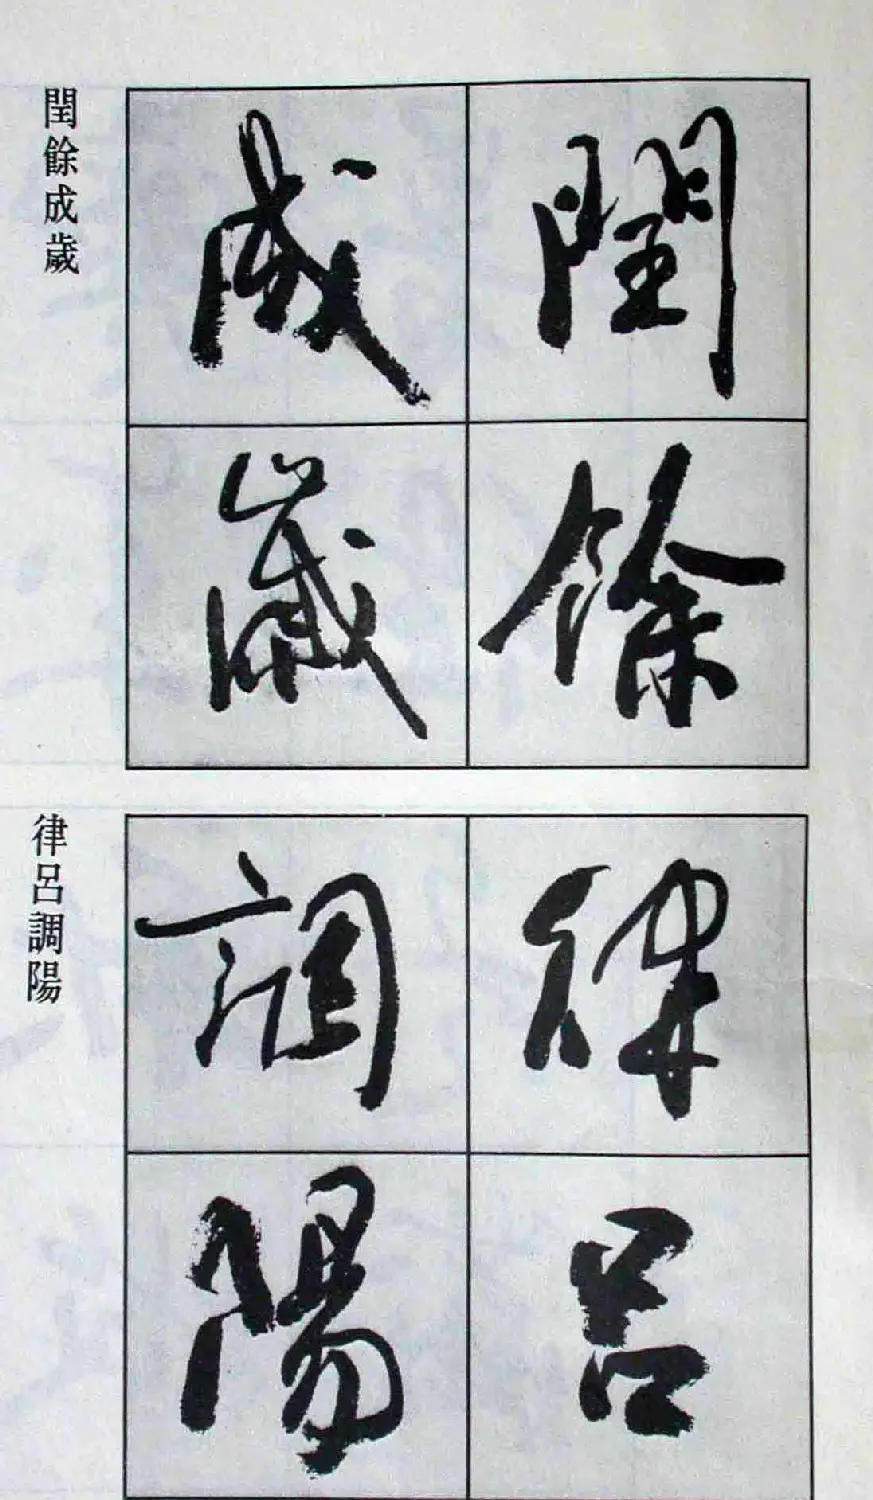 閏餘
成歲
閏餘成歲
律呂
調陽
律呂調陽